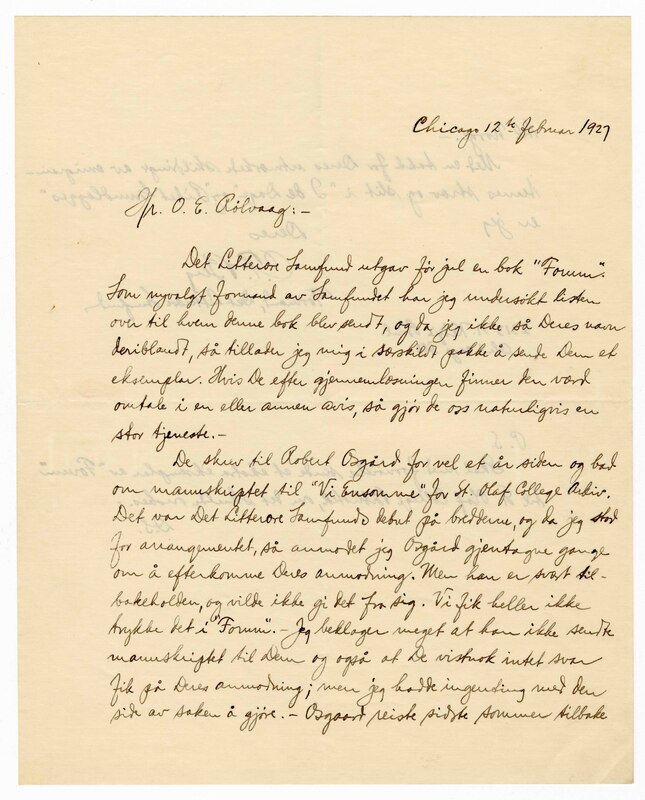 Chicago 12te februar 1927
Hr. O. E. Rölvaag:-
Det Litterære Samfund utgav før jul en bok "Forum".
Som nyvalgt formand av Samfundet har jeg undersökt listen
over til hvem denne bok blev sendt, og da jeg ikke så Deres navn
deriblandt, så tillader jeg mig i særskildt pakke å sende Dem et
eksemplar. Hvis De efter gjennemlæsningen finner den værd
omtale i en eller annen avis, så gjør de oss naturligvis en
stor tjeneste.-
De skrev til Robert Osgård for vel et år siden og bad
om manuskriptet til "Vi Ensomme" for St. Olaf College Arkiv.
Det var Det Litterære Samfunds debut på brædderne, og da jeg stod
for arrangementet, så anmodet jeg Osgård gjentagne gange
om å efterkomme Deres anmodning. Men han er svært til-
bakeholden, og vilde ikke gi det fra sig. Vi fik heller ikke
trykke det i "Forum". - Jeg beklager meget at han ikke sendte
manuskriptet til Dem og også at De vistnok intet svar
fik på Deres anmodning; men jeg hadde ingenting med den
side av saken å gjöre. - Osgaard reiste sidste sommer tilbake